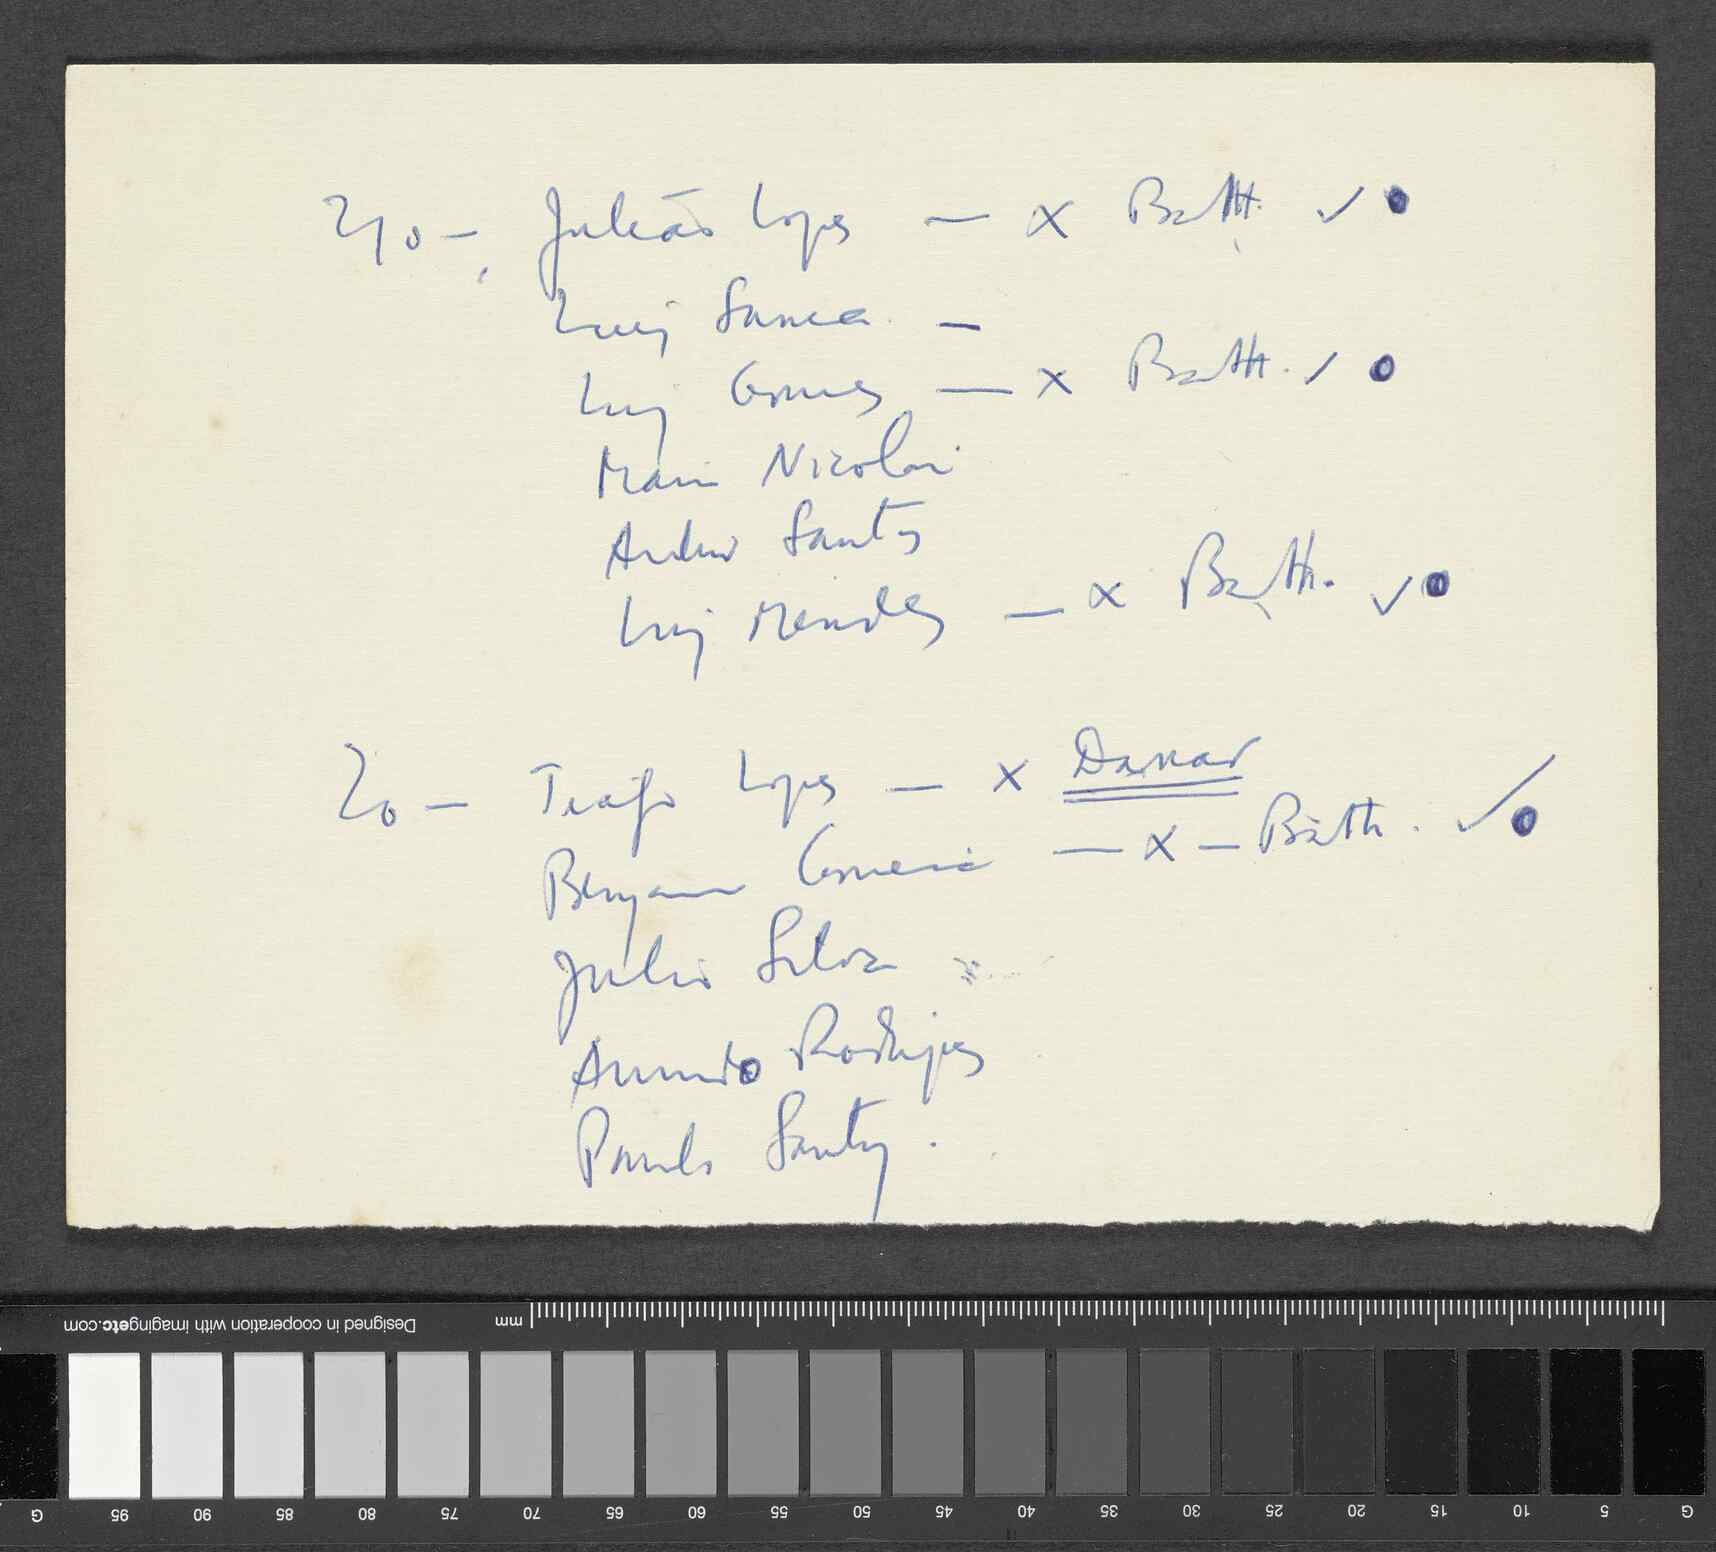 Julião Lopes — x Batt. ✓ ●
Luiz Sanca —
Luiz Gomes — x Batt. ✓ ●
Mario Nicolai
Santos
Luiz Mendes — x Batt. ✓ ●
20 — Lopes — x Dakar
Benjamim Correia — x — Batt. ✓ ●
Julio Silva
Armando Rodrigues
Paulo Santos.
Designed in cooperation with imagingetc.com
mm
G 95 90 85 80 75 70 65 60 55 50 45 40 35 30 25 20 15 10 5 G